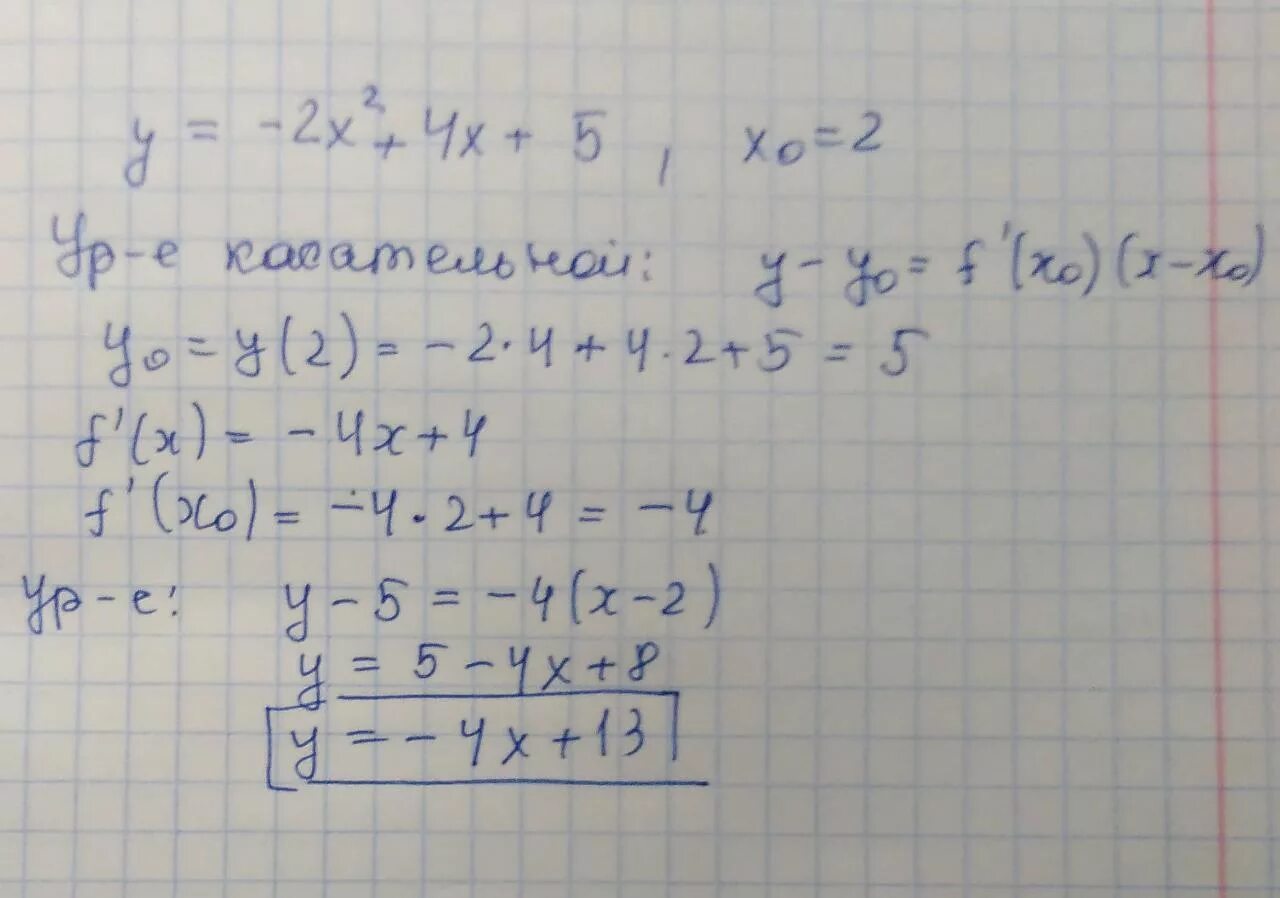 y = -2x² + 4x + 5 , x₀ = 2
Ур-е касательной: y - y₀ = f'(x₀)(x - x₀)
y₀ = y(2) = -2·4 + 4·2 + 5 = 5
f'(x) = -4x + 4
f'(x₀) = -4·2 + 4 = -4
Ур-е: y - 5 = -4(x - 2)
y = 5 - 4x + 8
y = -4x + 13